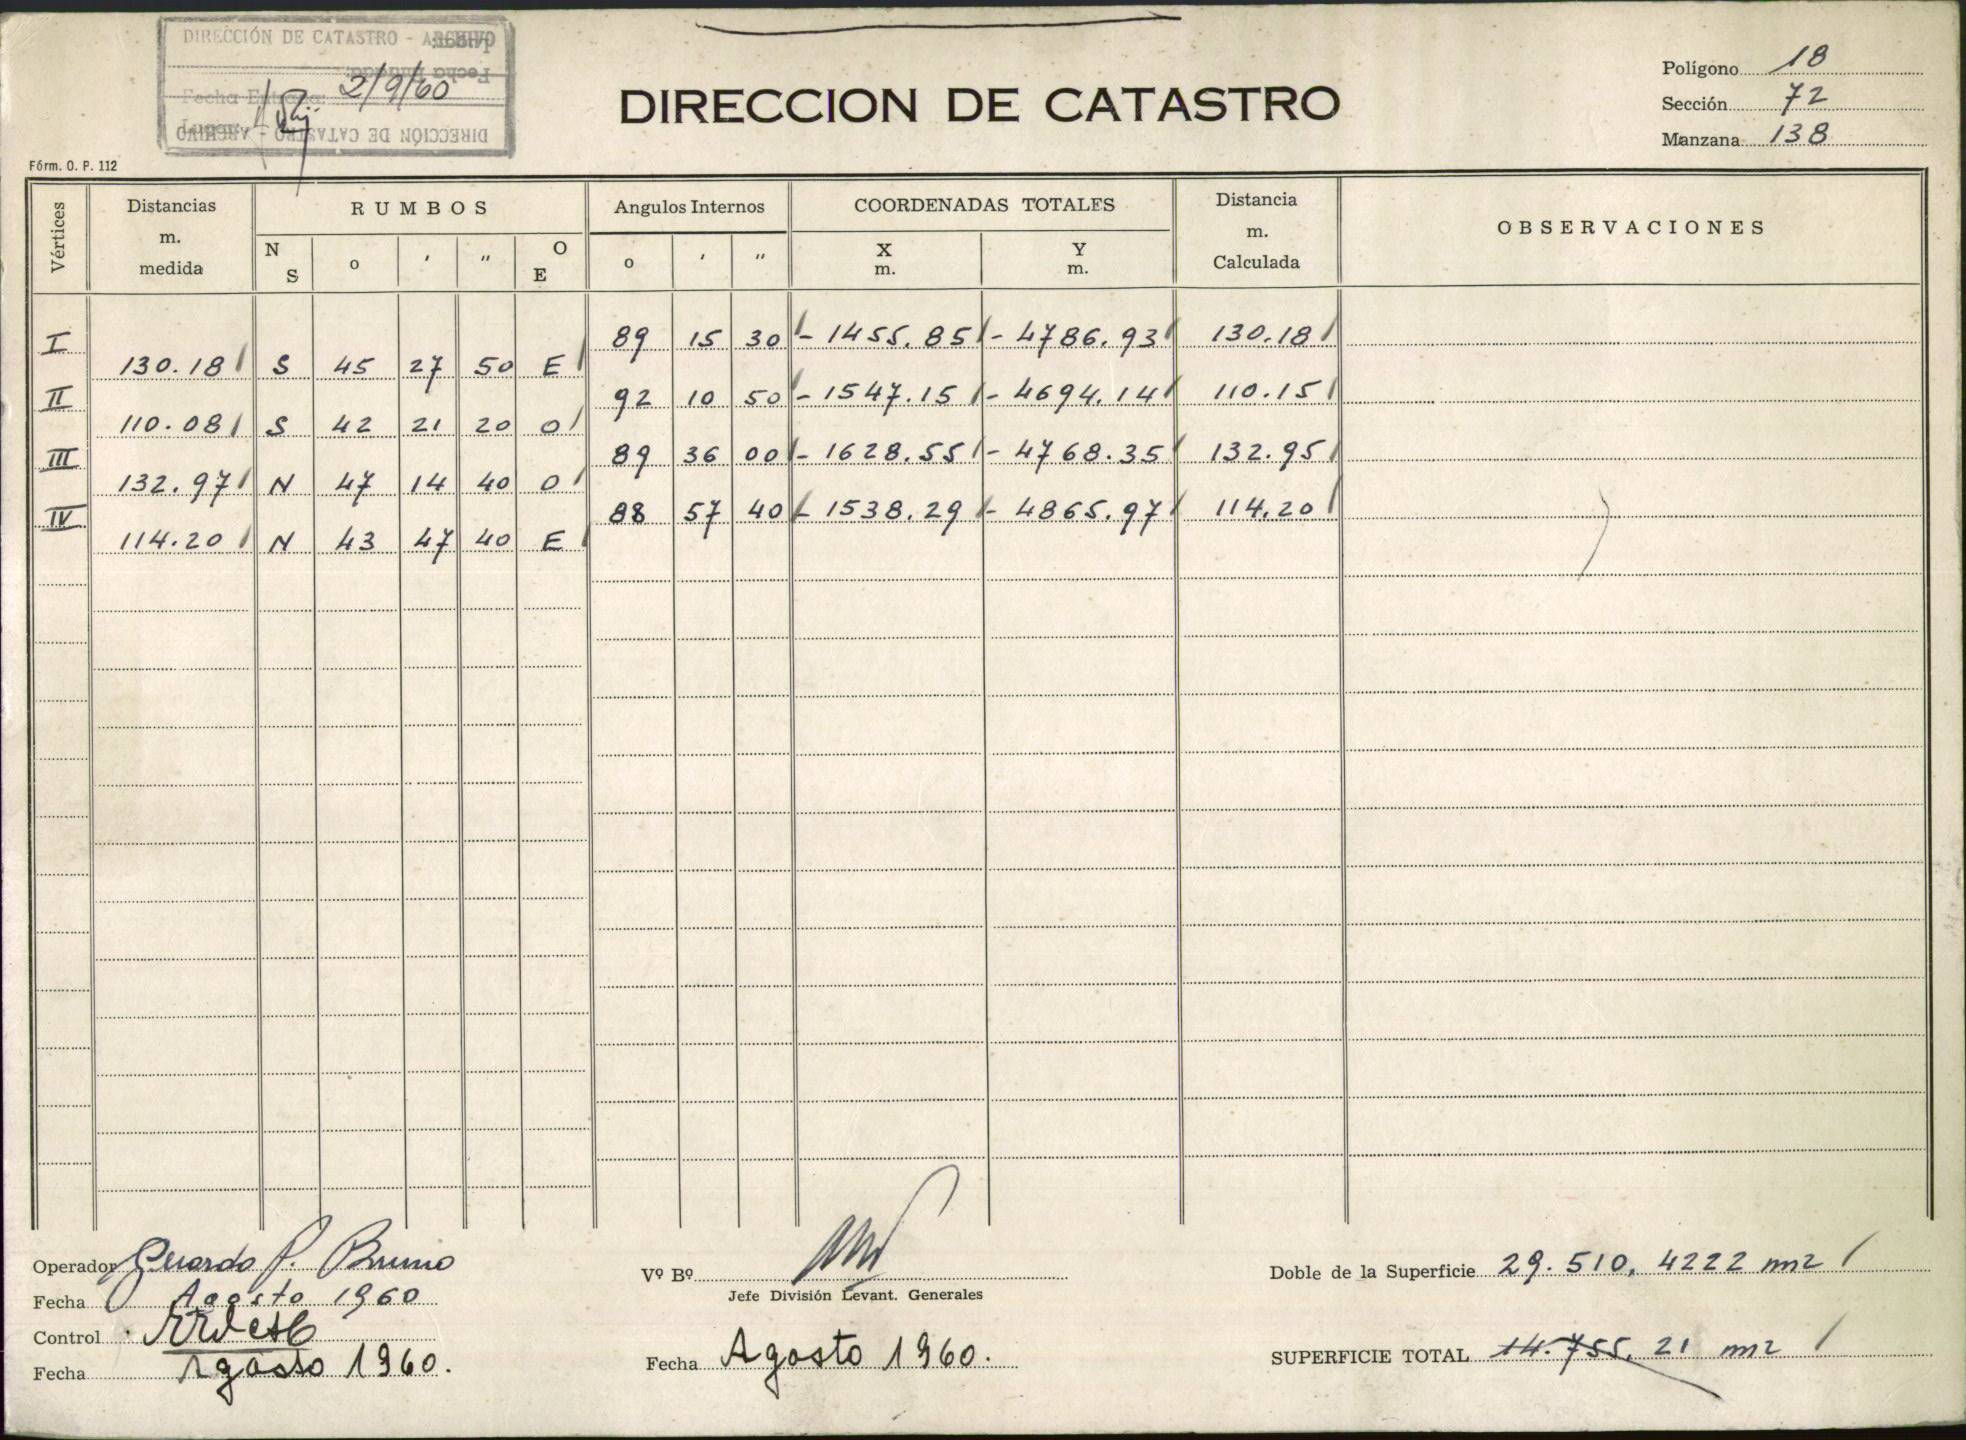 DIRECCIÓN DE CATASTRO - ARCHIVO
Fecha Entrada: 2/9/60
DIRECCIÓN DE CATASTRO - ARCHIVO
DIRECCION DE CATASTRO
Polígono 18
Sección 72
Manzana 138
Fórm. O. P. 112
Vértices Distancias m. medida RUMBOS Angulos Internos COORDENADAS TOTALES Distancia m. Calculada OBSERVACIONES
N S o ' " O E o ' " X m. Y m.
I 89 15 30 - 1455.85 - 4786.93 130.18
130.18 S 45 27 50 E
II 92 10 50 - 1547.15 - 4694.14 110.15
110.08 S 42 21 20 O
III 89 36 00 - 1628.55 - 4768.35 132.95
132.97 N 47 14 40 O
IV 88 57 40 - 1538.29 - 4865.97 114.20
114.20 N 43 47 40 E
Operador P. Bruno
Fecha Agosto 1960
Control
Fecha Agosto 1960.
Vº Bº
Jefe División Levant. Generales
Fecha Agosto 1960.
Doble de la Superficie 29.510,4222 m2
SUPERFICIE TOTAL 14.755,21 m2